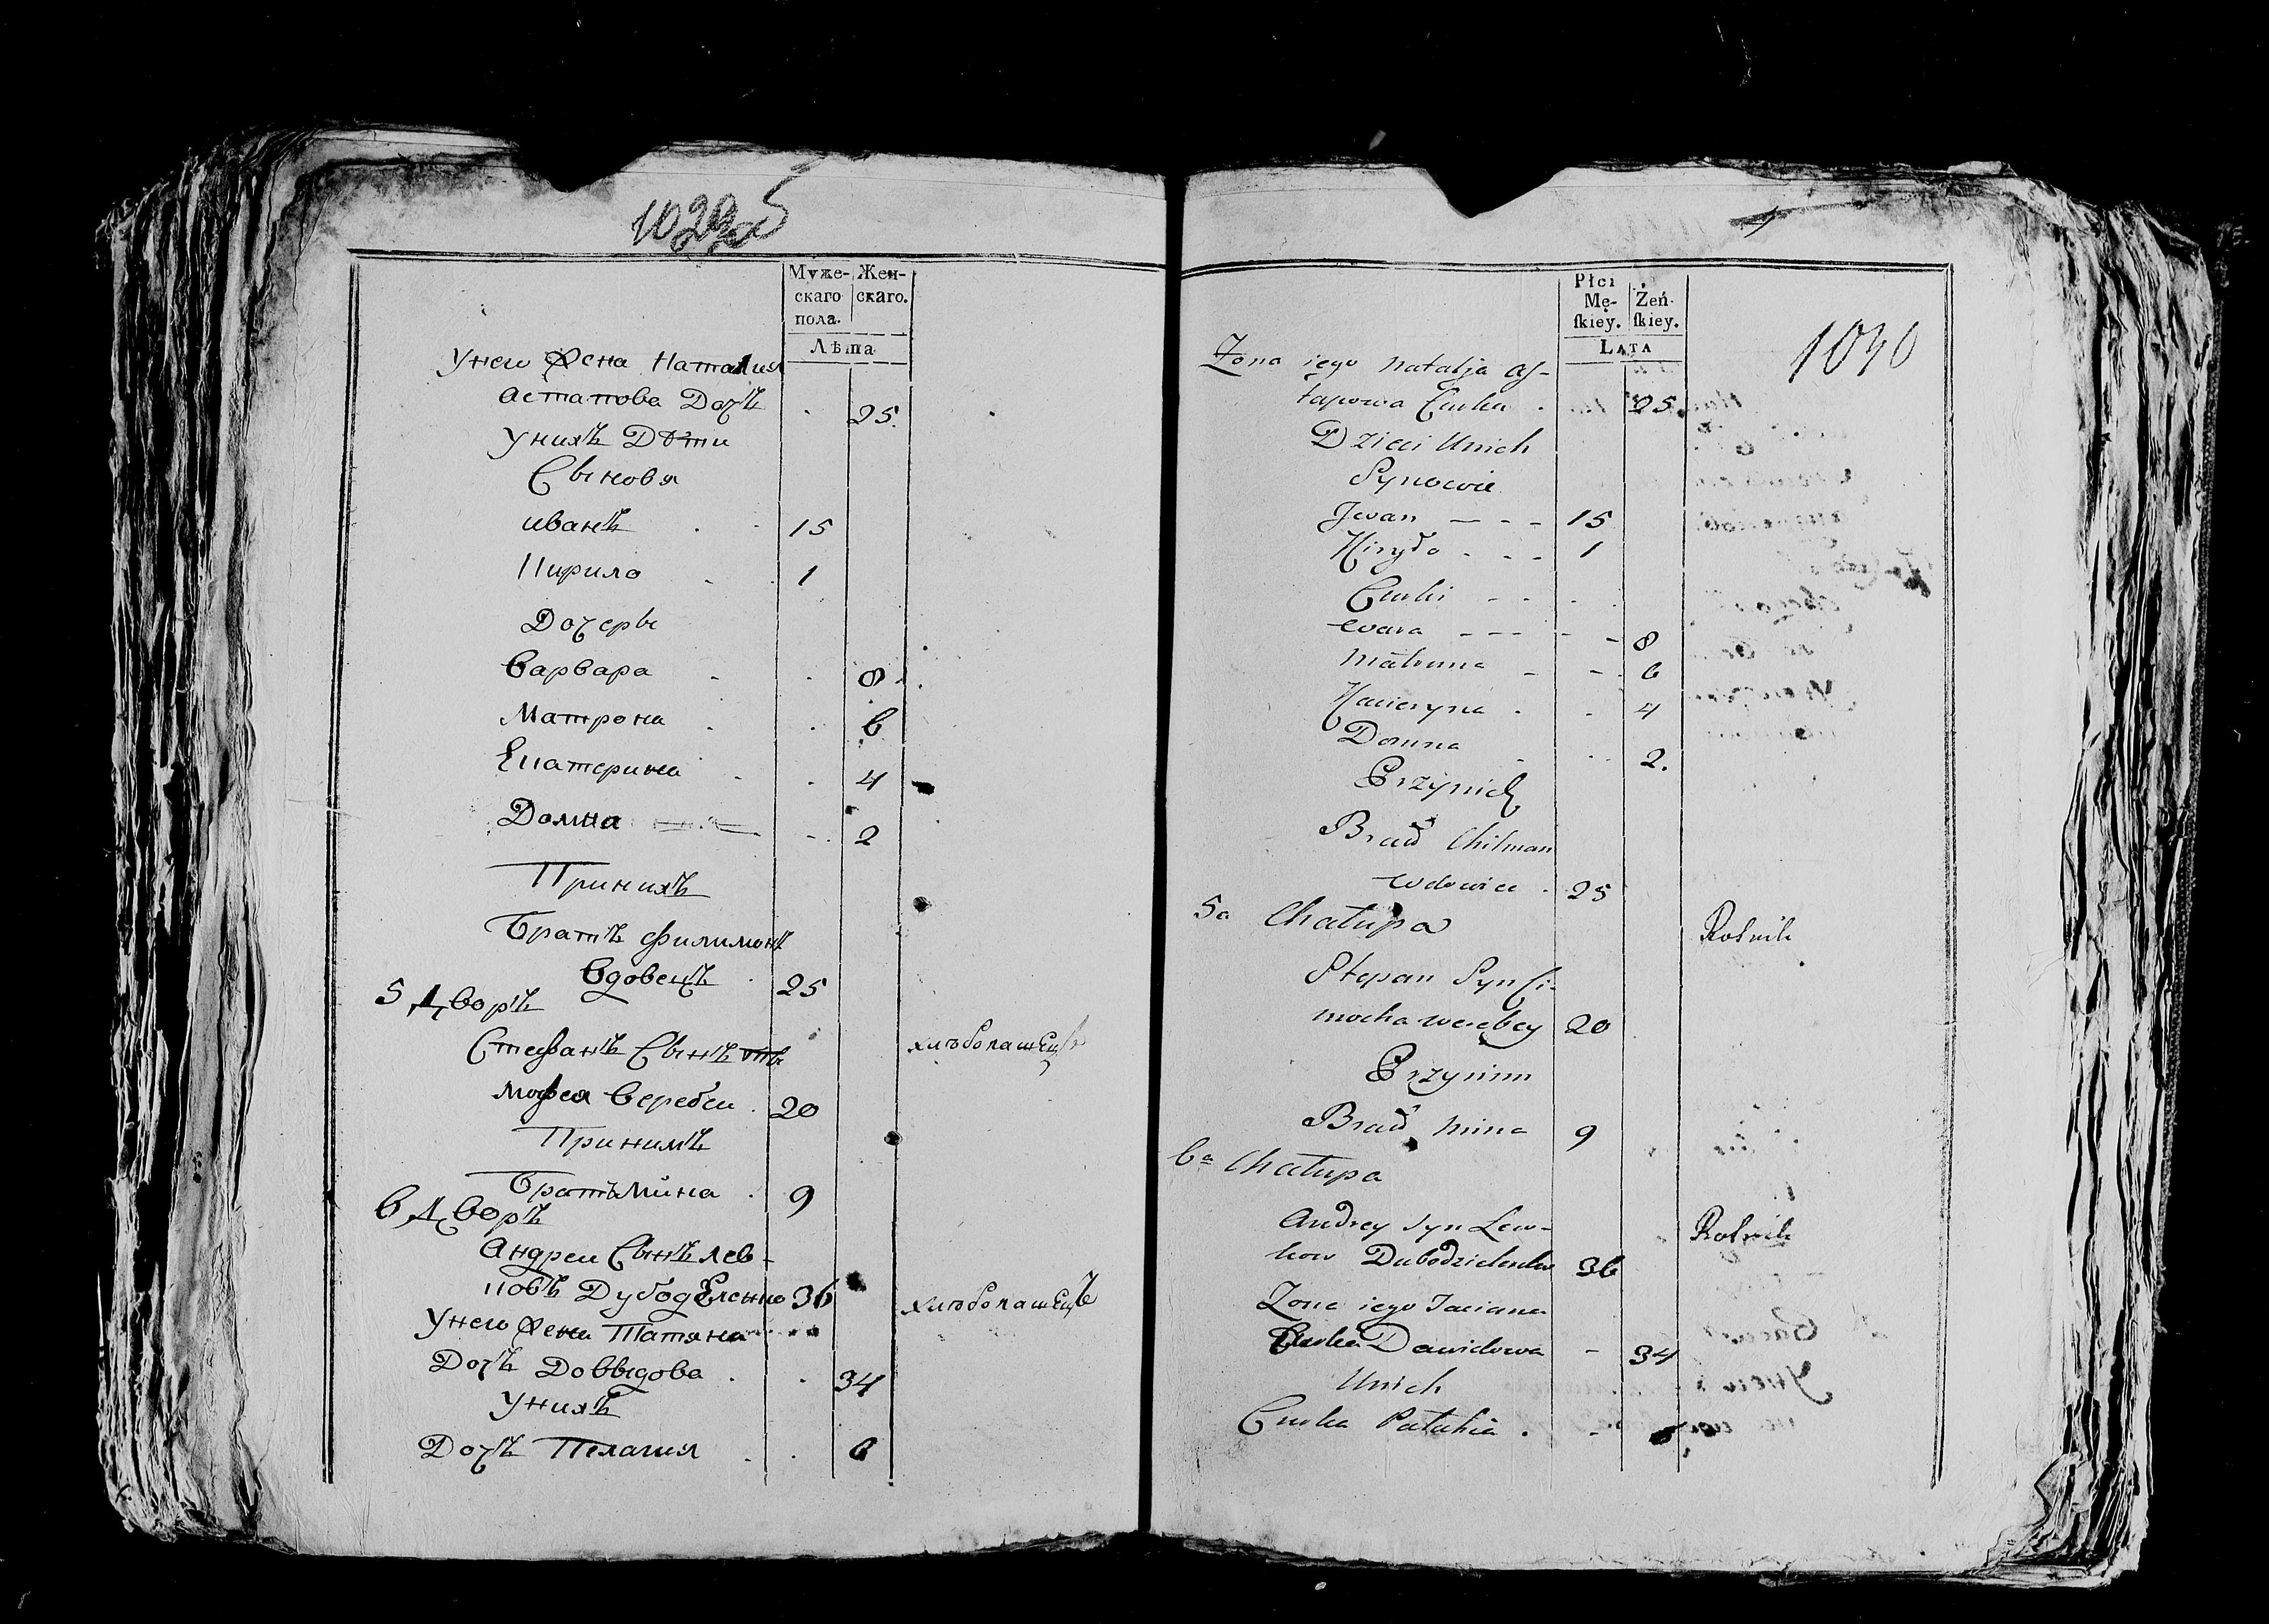 Муже-
скаго
пола.
Жен-
скаго.
Лѣта
Унего Жена Наталия
Астапова Дочь 25.
Унихъ Дѣти
Сыновя
иванъ 15
Кирило 1
Дочеры
Варвара 8
Матрона 6
Екатерина 4
Домна 2
Принихъ
Братъ Филимонъ
Вдовецъ 25
5 Дворъ
Стефанъ Сынъ Ти
мофея Веребеи 20
хлѣбопашецъ
Принимъ
Братъ Мина 9
6 Дворъ
Андреи Сынъ Лев-
ковъ Дубоделенко 36
хлѣбопашецъ
Унего Жена Татяна
Дочъ Доввидова 34
Унихъ
Дочъ Пелагия 6
Płci
Mę-
ſkiey.
Żeń-
ſkiey.
LATA
1030
Zona iego Natalja As-
tapowa Curka 25
Dzieci Unich
Synowie
Jwan 15
Kiryło 1
Curki
Matruna 6
Kacieryna 4
Domna 2.
Przynich
Brad Chilman
wdowiec 25
5a Chałupa
Rolnik
Stepan Syn Ci-
mocha Werebey 20
Przynim
Brad Mina 9
6a Chałupa
Andrey Syn Lew-
kow Dubodzielenko 36
Rolnik
Zona iego Taciana
Curka Dawidowa 34
Unich
Curka Pałahia